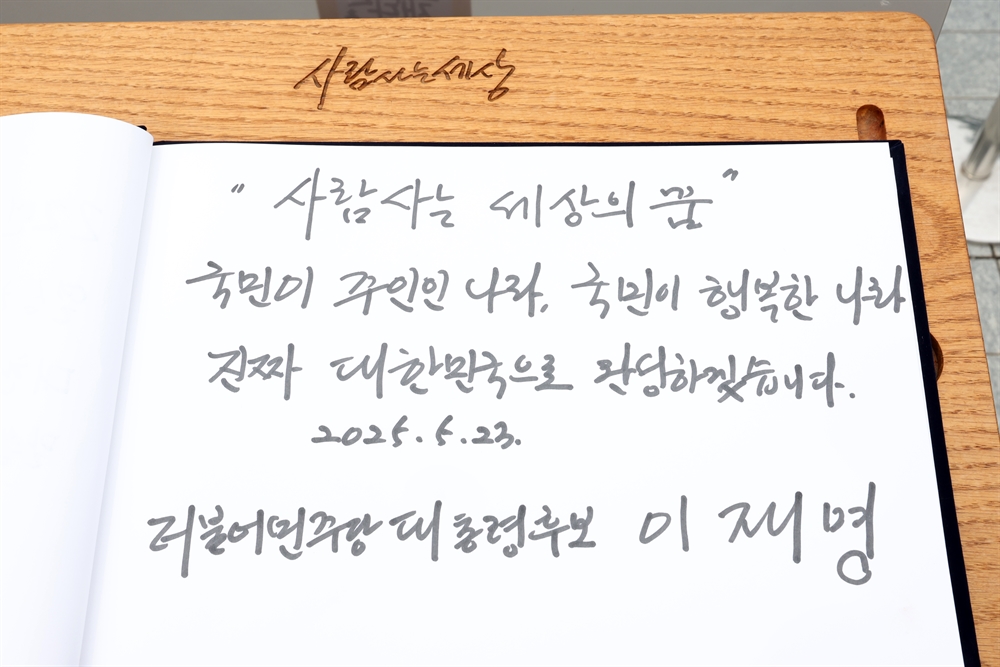 사람사는세상
"사람사는 세상의 꿈"
국민이 주인인 나라, 국민이 행복한 나라
진짜 대한민국으로 완성하겠습니다.
2025.5.23.
더불어민주당 대통령후보 이재명